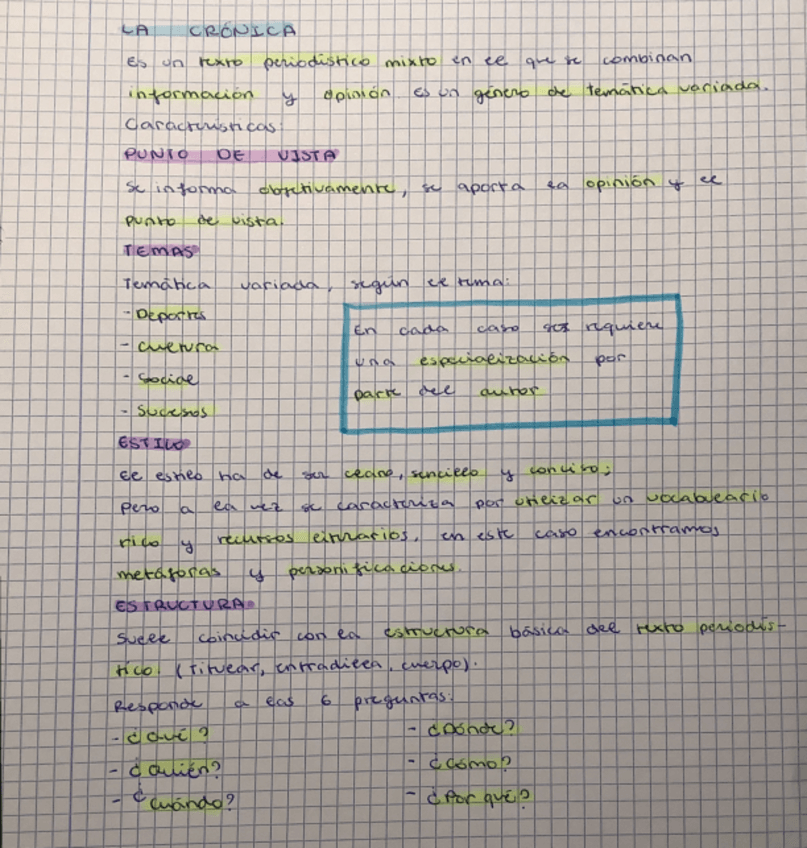 LA CRÓNICA
Es un texto periodístico mixto en el que se combinan
información y opinión es un género de temática variada.
Características:
PUNTO DE VISTA
Se informa objetivamente, se aporta la opinión y el
punto de vista.
TEMAS
Temática variada, según el tema:
- Deportes
- Cultura
- Social
- Sucesos
En cada caso se requiere
una especialización por
parte del autor
ESTILO
El estilo ha de ser claro, sencillo y conciso;
Pero a la vez se caracteriza por utilizar un vocabulario
rico y recursos literarios, en este caso encontramos
metáforas y personificaciones.
ESTRUCTURA
Suele coincidir con la estructura básica del texto periodís-
tico. (Titular, entradilla, cuerpo).
Responde a las 6 preguntas:
- ¿Qué?
- ¿Quién?
- ¿Cuándo?
- ¿Dónde?
- ¿Cómo?
- ¿Por qué?